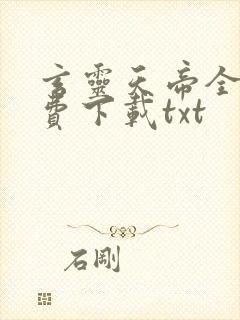 言靈天帝全
費下載txt
石剛